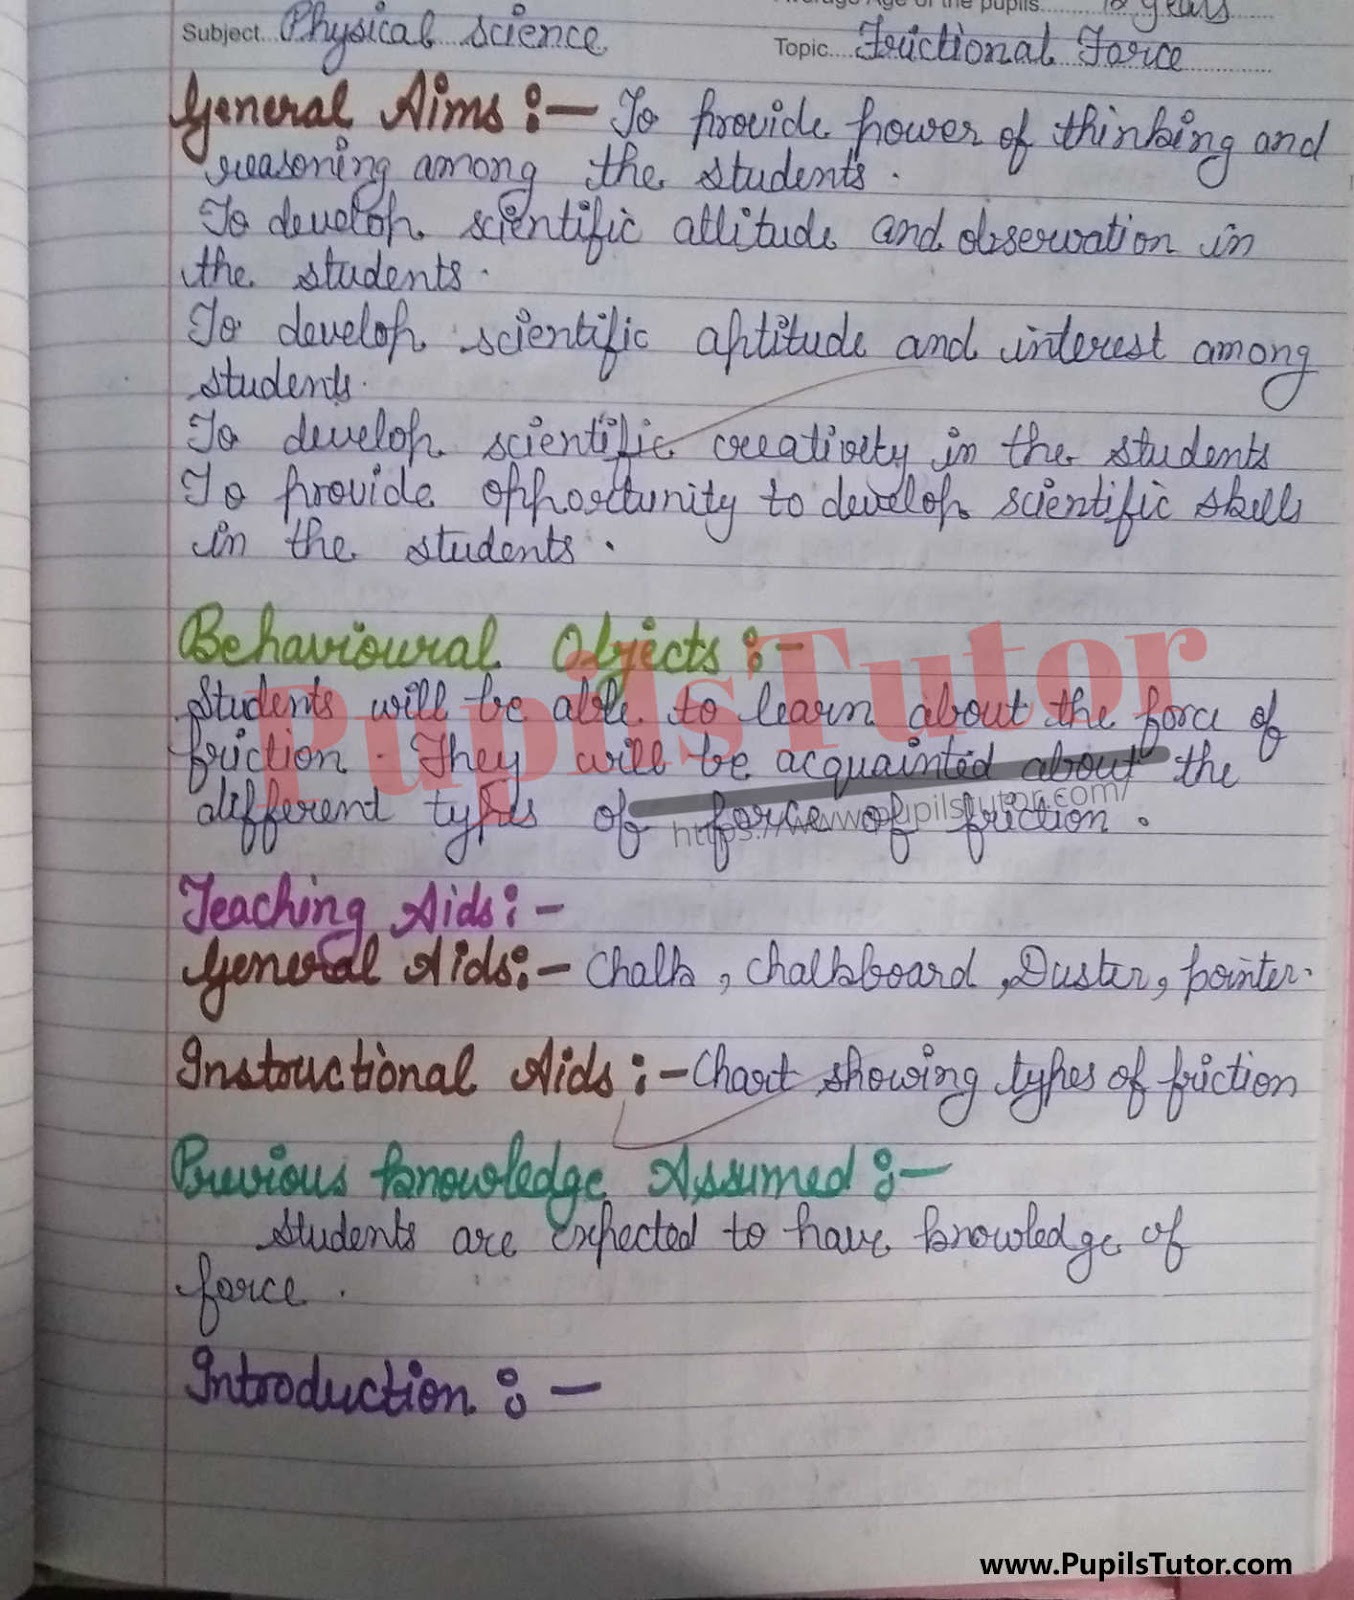 Average Age of the pupils........ years
Subject... Physical science
Topic.... Frictional Force
General Aims :- To provide power of thinking and
reasoning among the students.
To develop scientific attitude and observation in
the students.
To develop scientific aptitude and interest among
students.
To develop scientific creativity in the students
To provide opportunity to develop scientific skills
in the students.
Behavioural Objects :-
Students will be able to learn about the force of
friction. They will be acquainted about the
different types of force of friction.
PupilsTutor
https://www.pupilstutor.com/
Teaching Aids :-
General Aids:- Chalk, chalkboard, Duster, pointer.
Instructional Aids :- Chart showing types of friction
Previous knowledge Assumed :-
Students are expected to have knowledge of
force.
Introduction :-
www.PupilsTutor.com